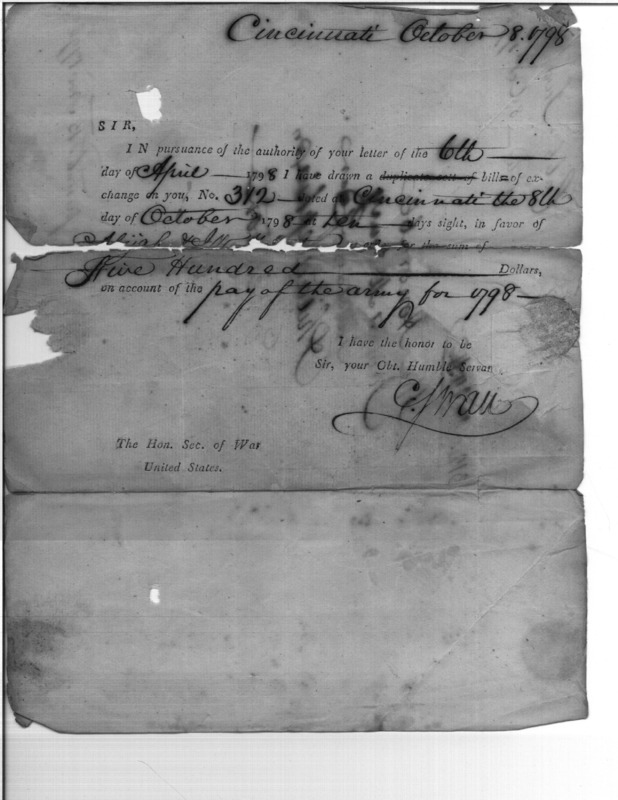 Cincinnati October 8. 1798
SIR,
IN pursuance of the authority of your letter of the 6th
day of April 1798 I have drawn a duplicate sett of bill of ex-
change on you, No. 312 dated at Cincinnati the 8th
day of October 1798 at ten days sight, in favor of
or the sum of
Five Hundred Dollars,
on account of the pay of the army for 1798
I have the honor to be
Sir, your Obt. Humble Servan
C. Swan
The Hon. Sec. of War
United States.